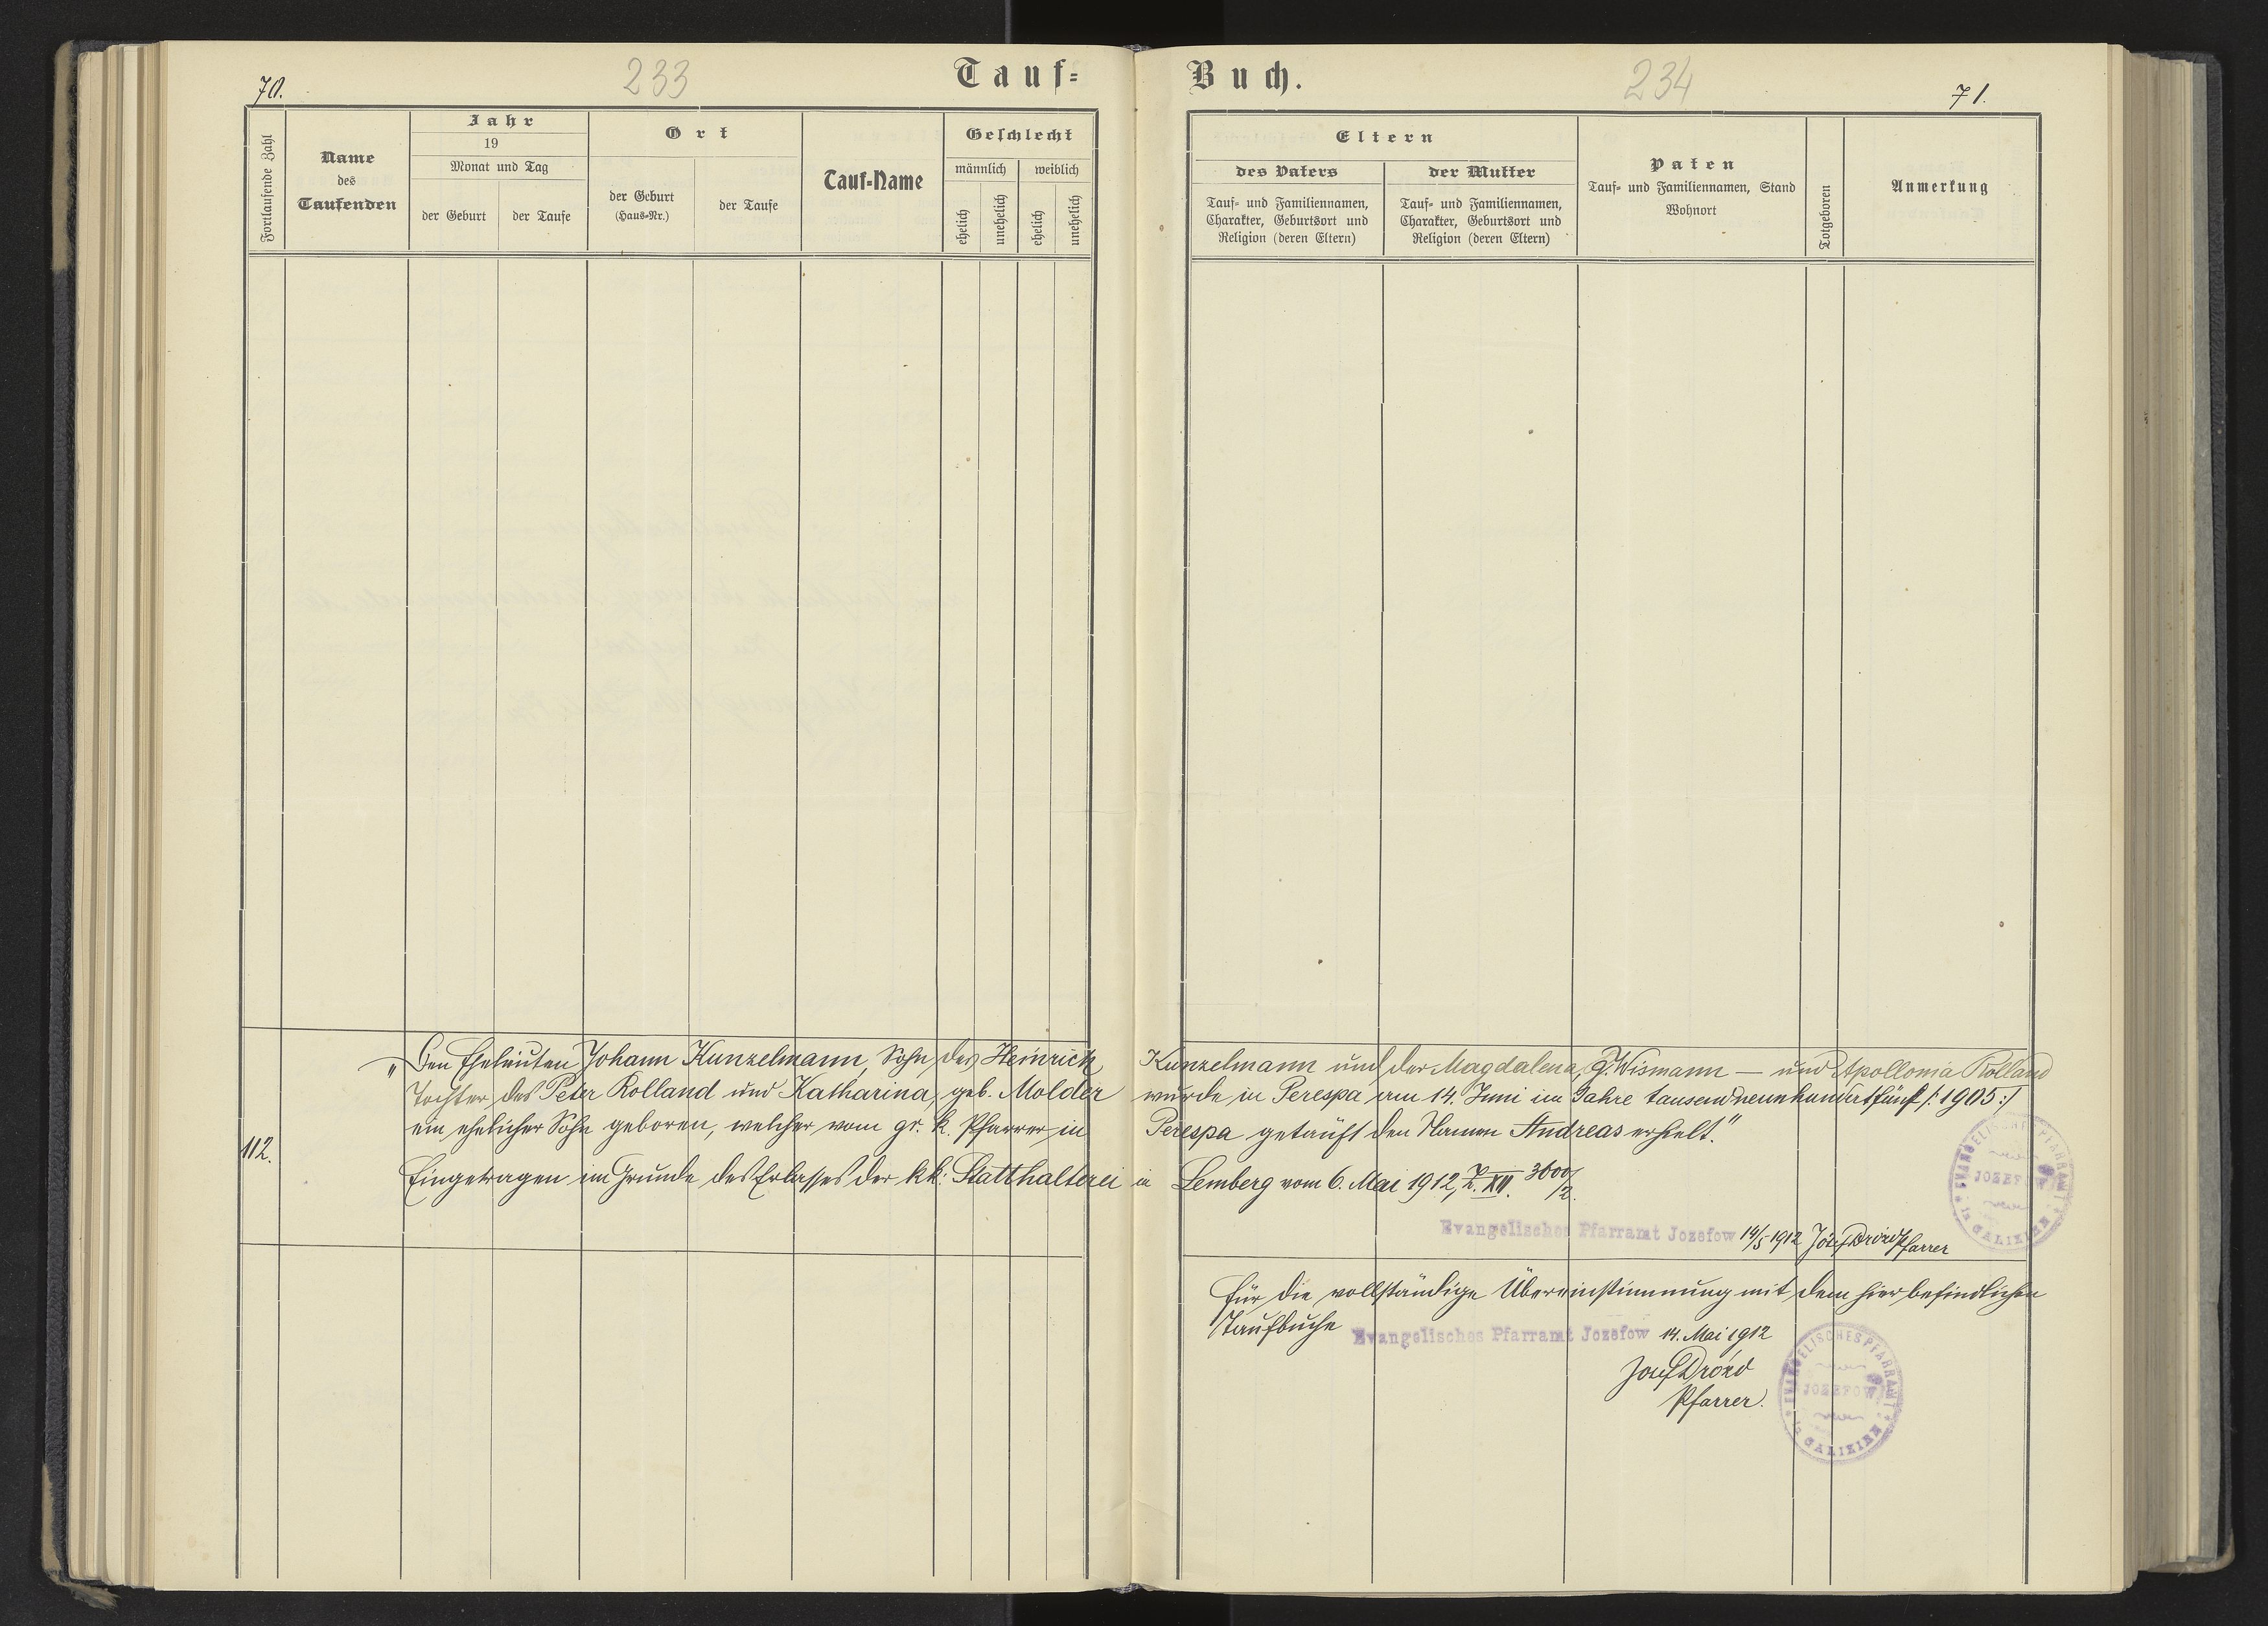 70.
233
Tauf-
Fortlaufende Zahl
Name
des
Taufenden
Jahr
19
Monat und Tag
der Geburt
der Taufe
Ort
der Geburt
(Haus-Nr.)
der Taufe
Tauf-Name
Geschlecht
männlich
weiblich
ehelich
unehelich
ehelich
unehelich
Buch.
234
71.
Eltern
des Vaters
Tauf- und Familiennamen,
Charakter, Geburtsort und
Religion (deren Eltern)
der Mutter
Tauf- und Familiennamen,
Charakter, Geburtsort und
Religion (deren Eltern)
Paten
Tauf- und Familiennamen, Stand
Wohnort
Totgeboren
Anmerkung
112.
„Den Eheleuten Johann Kunzelmann, Sohn des Heinrich Kunzelmann und der Magdalena, g. Wismann — und Apollonia Rolland
Tochter des Peter Rolland und Katharina, geb. Molder wurde in Perespa am 14. Juni im Jahre tausendneunhundertfünf /:1905:/
ein ehelicher Sohn geboren, welcher vom gr. k. Pfarrer in Perespa getauft den Namen Andreas erhielt."
Eingetragen im Grunde des Erlasses der kk: Statthalterei in Lemberg vom 6. Mai 1912, Z. XII. 3600/2.
Evangelisches Pfarramt Jozefow 14/5 1912 Józef Drózd Pfarrer
EVANGELISCHES PFARRAMT
JOZEFOW
in GALIZIEN
Für die vollständige Übereinstimmung mit dem hier befindlichen
Taufbuche
Evangelisches Pfarramt Jozefow 14. Mai 1912
Józef Drózd
Pfarrer.
EVANGELISCHES PFARRAMT
JOZEFOW
in GALIZIEN